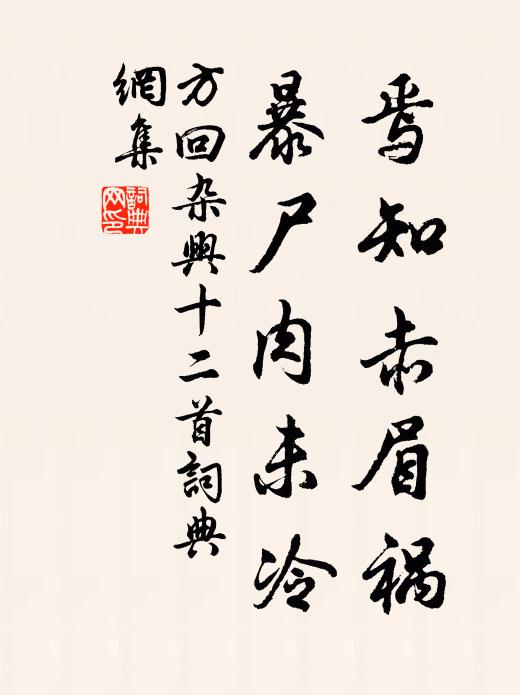 焉知赤眉祸
暴尸肉未冷
方回杂興十二首詞典
網集
詞典
网印